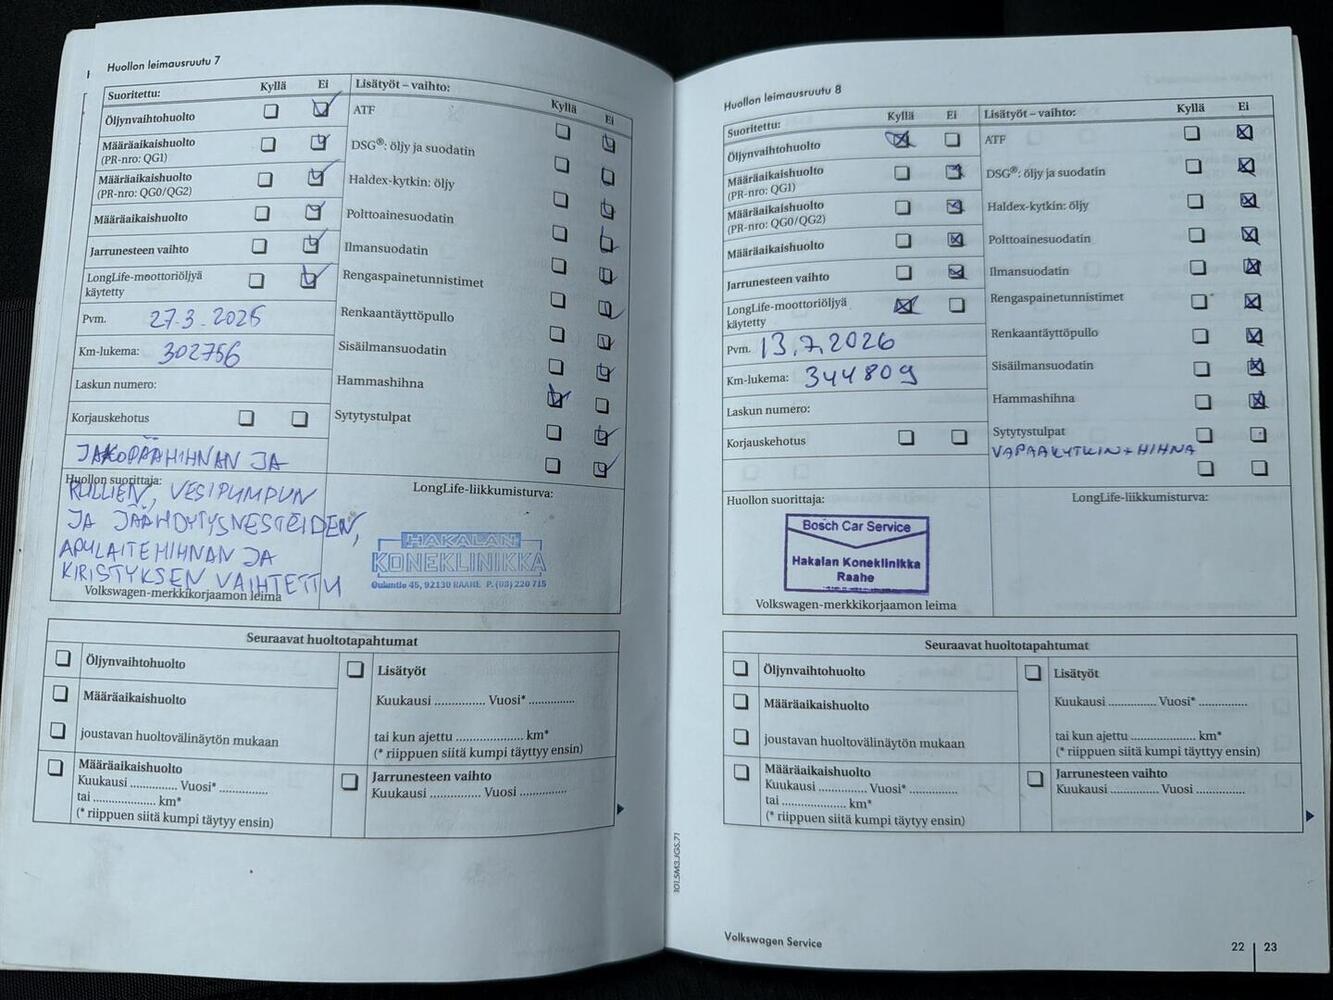 Huollon leimausruutu 7
Suoritettu: Kyllä Ei
Öljynvaihtohuolto
Määräaikaishuolto
(PR-nro: QG1)
Määräaikaishuolto
(PR-nro: QG0/QG2)
Määräaikaishuolto
Jarrunesteen vaihto
LongLife-moottoriöljyä
käytetty
Pvm. 27.3.2025
Km-lukema: 302756
Laskun numero:
Korjauskehotus
JAKOPÄÄHIHNAN JA
Huollon suorittaja:
RULLIEN, VESIPUMPUN
JA JÄÄHDYTYSNESTEIDEN,
APULAITEHIHNAN JA
KIRISTYKSEN VAIHTETTU
Volkswagen-merkkikorjaamon leima
Lisätyöt – vaihto: Kyllä Ei
ATF
DSG®: öljy ja suodatin
Haldex-kytkin: öljy
Polttoainesuodatin
Ilmansuodatin
Rengaspainetunnistimet
Renkaantäyttöpullo
Sisäilmansuodatin
Hammashihna
Sytytystulpat
LongLife-liikkumisturva:
HAKALAN
KONEKLINIKKA
Ouluntie 45, 92130 RAAHE P. (08) 220 715
Seuraavat huoltotapahtumat
Öljynvaihtohuolto
Määräaikaishuolto
joustavan huoltovälinäytön mukaan
Määräaikaishuolto
Kuukausi .............. Vuosi* ..............
tai ................... km*
(* riippuen siitä kumpi täytyy ensin)
Lisätyöt
Kuukausi .............. Vuosi* .............
tai kun ajettu ................... km*
(* riippuen siitä kumpi täyttyy ensin)
Jarrunesteen vaihto
Kuukausi .............. Vuosi ..............
101.5M3.JGS.71
Huollon leimausruutu 8
Suoritettu: Kyllä Ei
Öljynvaihtohuolto
Määräaikaishuolto
(PR-nro: QG1)
Määräaikaishuolto
(PR-nro: QG0/QG2)
Määräaikaishuolto
Jarrunesteen vaihto
LongLife-moottoriöljyä
käytetty
Pvm. 13.7.2026
Km-lukema: 344809
Laskun numero:
Korjauskehotus
Huollon suorittaja:
Bosch Car Service
Hakalan Koneklinikka
Raahe
Volkswagen-merkkikorjaamon leima
Lisätyöt – vaihto: Kyllä Ei
ATF
DSG®: öljy ja suodatin
Haldex-kytkin: öljy
Polttoainesuodatin
Ilmansuodatin
Rengaspainetunnistimet
Renkaantäyttöpullo
Sisäilmansuodatin
Hammashihna
Sytytystulpat
VAPAAKYTKIN+HIHNA
LongLife-liikkumisturva:
Seuraavat huoltotapahtumat
Öljynvaihtohuolto
Määräaikaishuolto
joustavan huoltovälinäytön mukaan
Määräaikaishuolto
Kuukausi .............. Vuosi* ..............
tai ................... km*
(* riippuen siitä kumpi täytyy ensin)
Lisätyöt
Kuukausi .............. Vuosi* ..............
tai kun ajettu ................... km*
(* riippuen siitä kumpi täyttyy ensin)
Jarrunesteen vaihto
Kuukausi .............. Vuosi ..............
Volkswagen Service
22 | 23